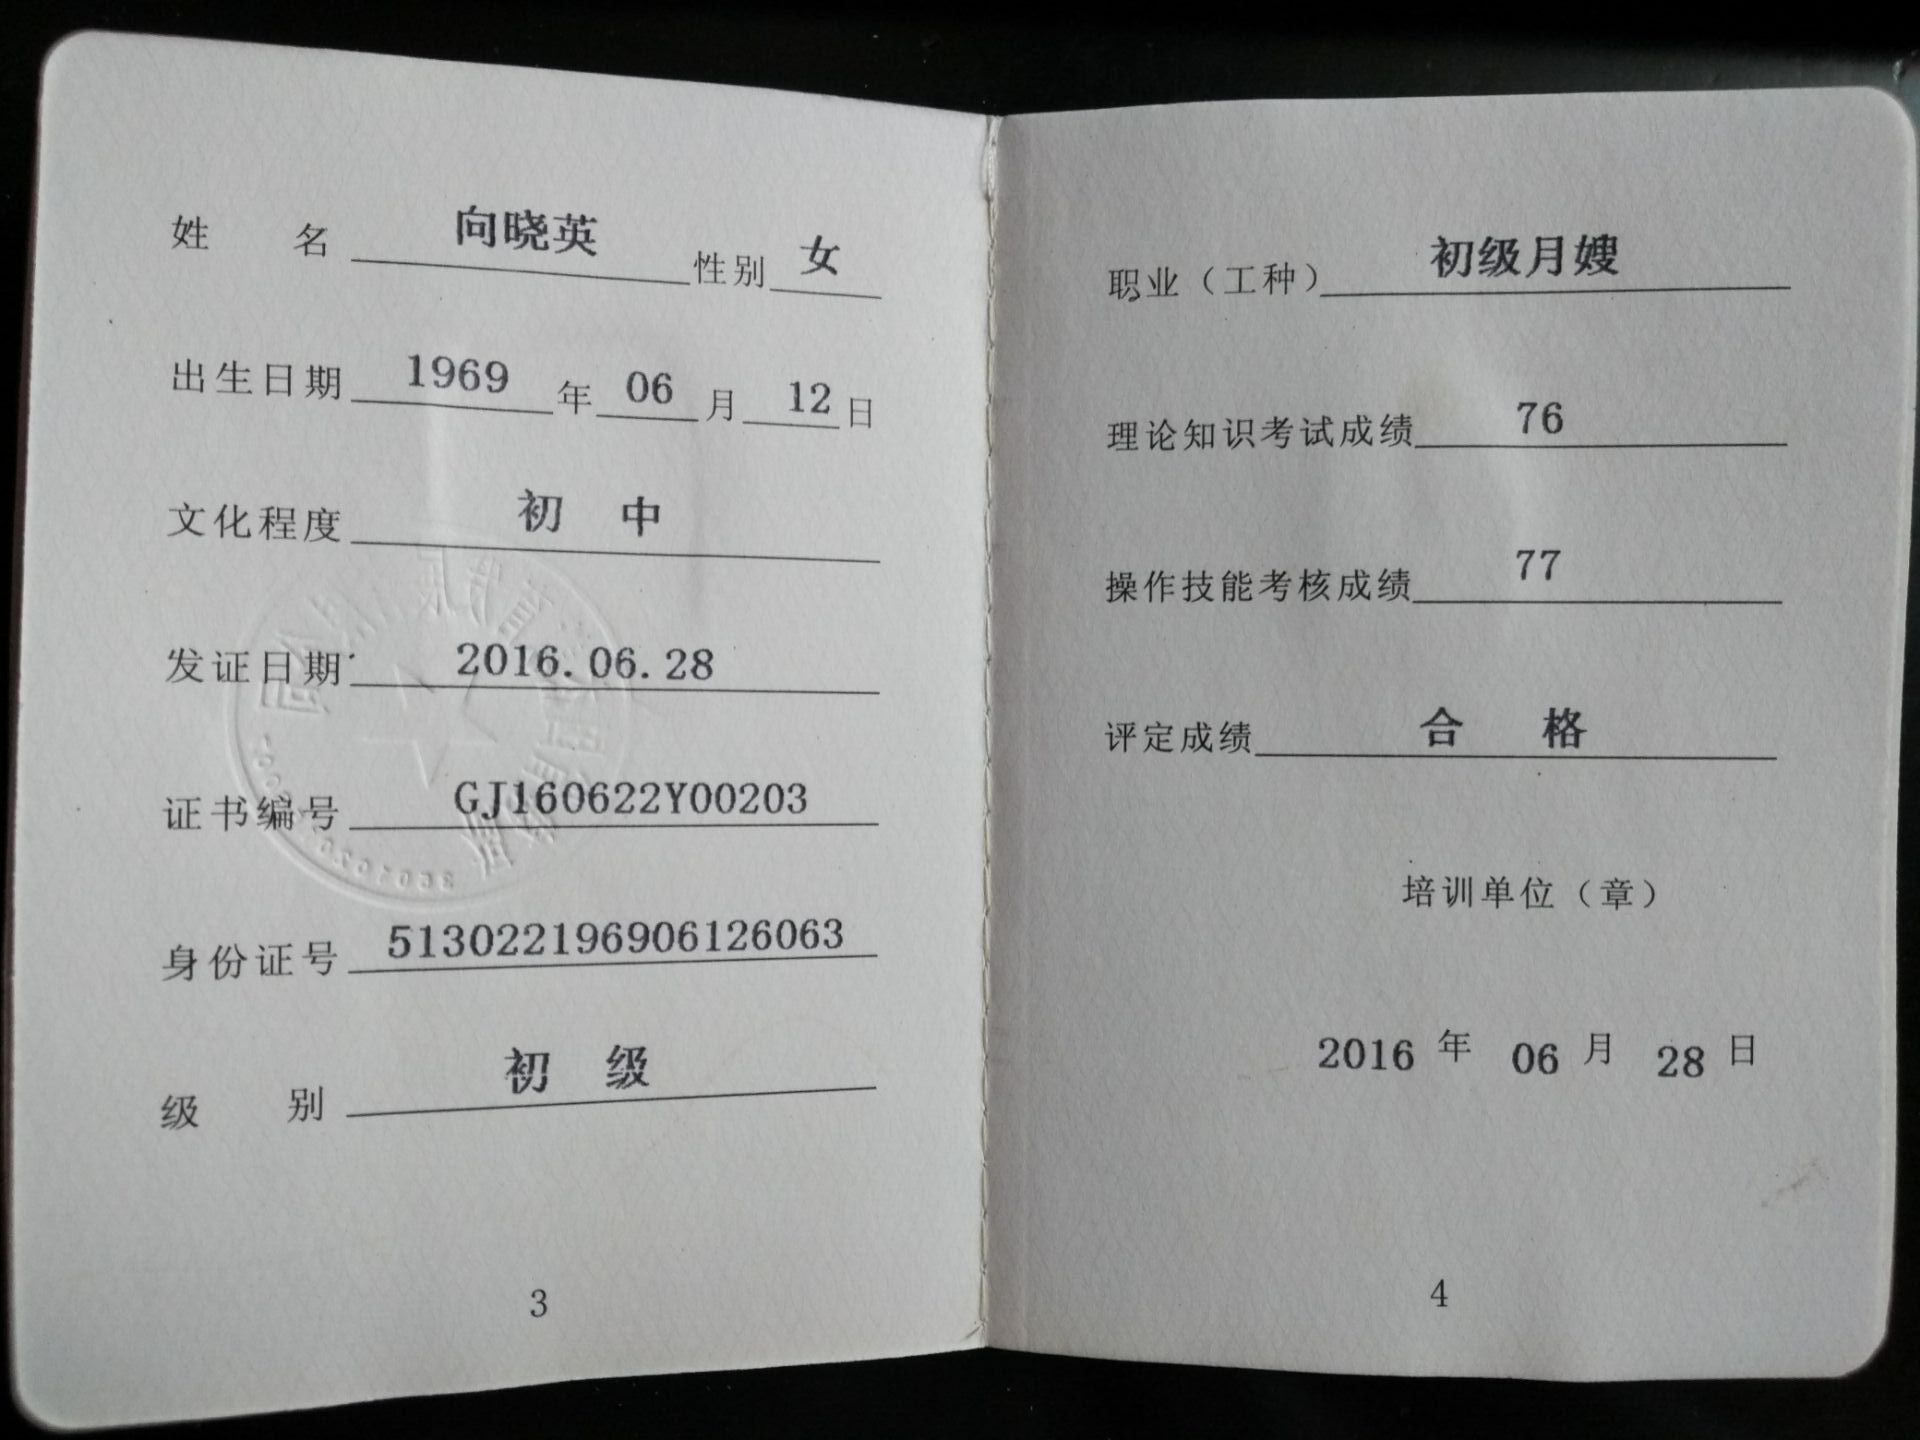 姓 名 向晓英 性别 女
出生日期 1969 年 06 月 12 日
文化程度 初 中
发证日期 2016.06.28
证书编号 GJ160622Y00203
身份证号 513022196906126063
级 别 初 级
3
职业（工种） 初级月嫂
理论知识考试成绩 76
操作技能考核成绩 77
评定成绩 合 格
培训单位（章）
2016 年 06 月 28 日
4